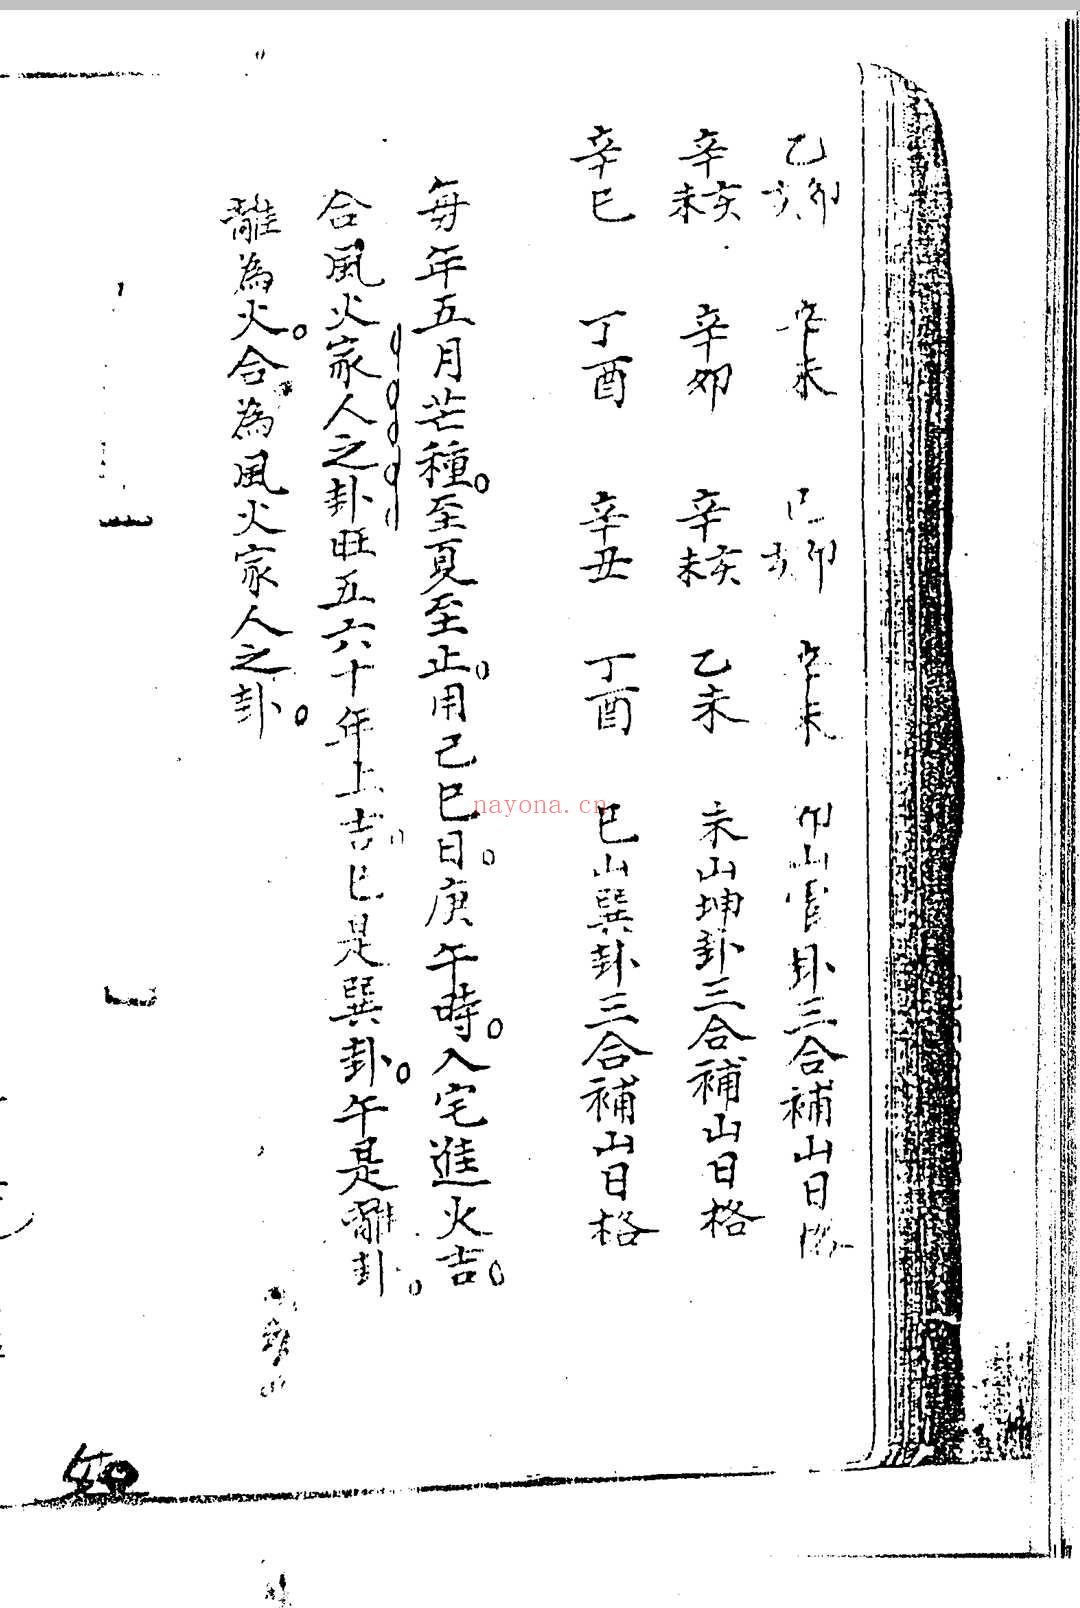 乙卯亥 辛未 己卯亥 辛未 卯山震卦三合補山日格
辛亥未 辛卯 辛亥未 乙未 未山坤卦三合補山日格
辛巳 丁酉 辛丑 丁酉 巳山巽卦三合補山日格
每年五月芒種至夏至止用己巳日庚午時入宅進火吉
合風火家人之卦旺五六十年上吉巳是巽卦午是離卦
離為火合為風火家人之卦
nayona.cn